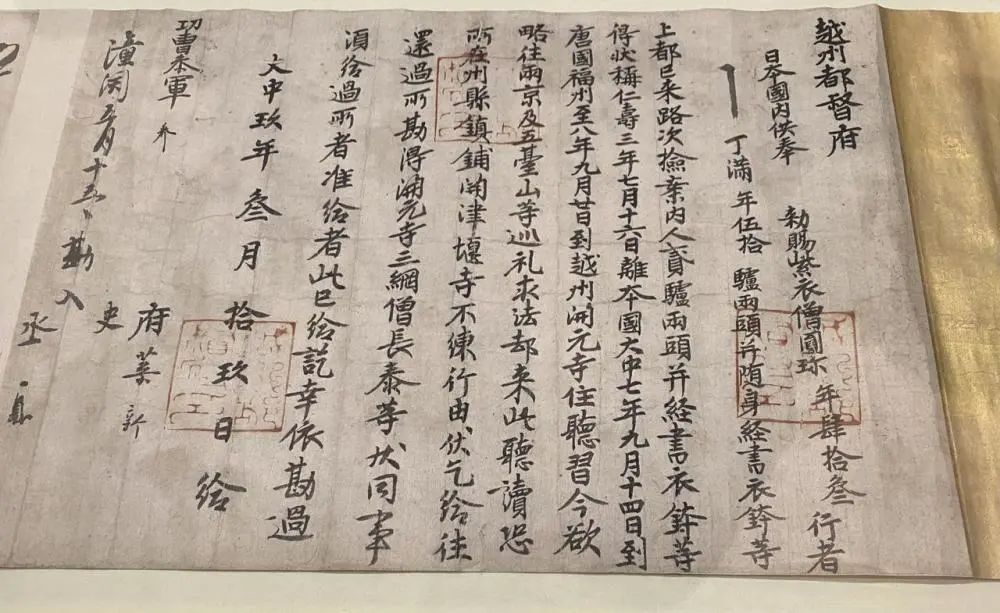 越州都督府
日本國内供奉 勅賜紫衣僧圓珍 年肆拾叁 行者
丁滿 年伍拾 驢兩頭并随身経書衣鉢等
上都已来路次撿案内人貳驢兩頭并経書衣鉢等
得狀稱仁壽三年七月十六日離本國大中七年九月十四日到
唐國福州至八年九月廿日到越州開元寺住聽習今欲
略往兩京及五臺山等巡礼求法却来此聽讀恐
所在州縣鎮鋪関津堰寺不練行由伏乞給往
還過所勘得開元寺三綱僧長泰等状同事
須給過所者准給者此已給訖幸依勘過
大中玖年叁月 拾玖日給
府葉新
功曹参軍
史
潼関五月十五日勘入
丞